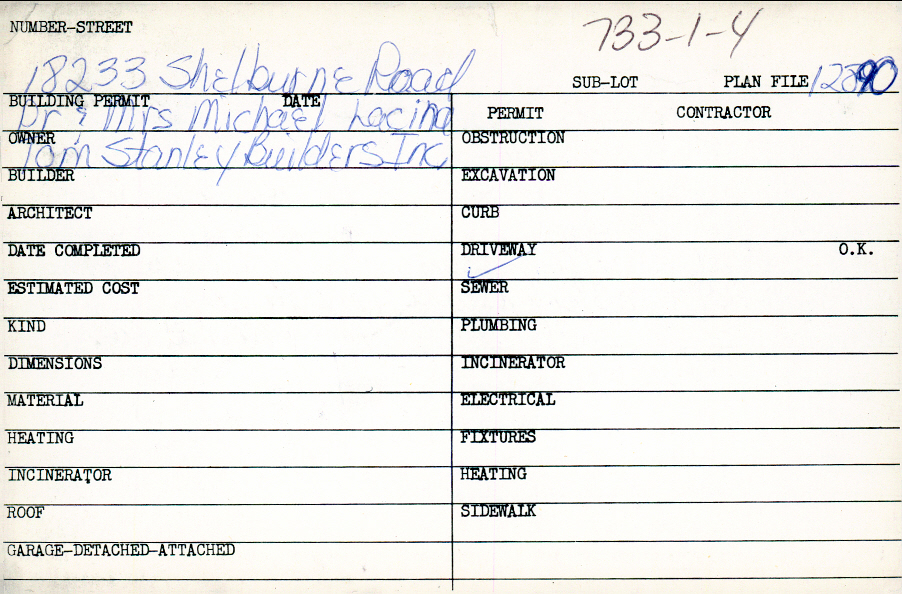 NUMBER-STREET
733-1-4
18233 Shelburne Road
SUB-LOT PLAN FILE
BUILDING PERMIT DATE
Dr & Mrs Michael
PERMIT CONTRACTOR
OWNER
Tom Stanley Builders Inc
OBSTRUCTION
BUILDER
EXCAVATION
ARCHITECT
CURB
DATE COMPLETED
DRIVEWAY O.K.
ESTIMATED COST
SEWER
KIND
PLUMBING
DIMENSIONS
INCINERATOR
MATERIAL
ELECTRICAL
HEATING
FIXTURES
INCINERATOR
HEATING
ROOF
SIDEWALK
GARAGE-DETACHED-ATTACHED